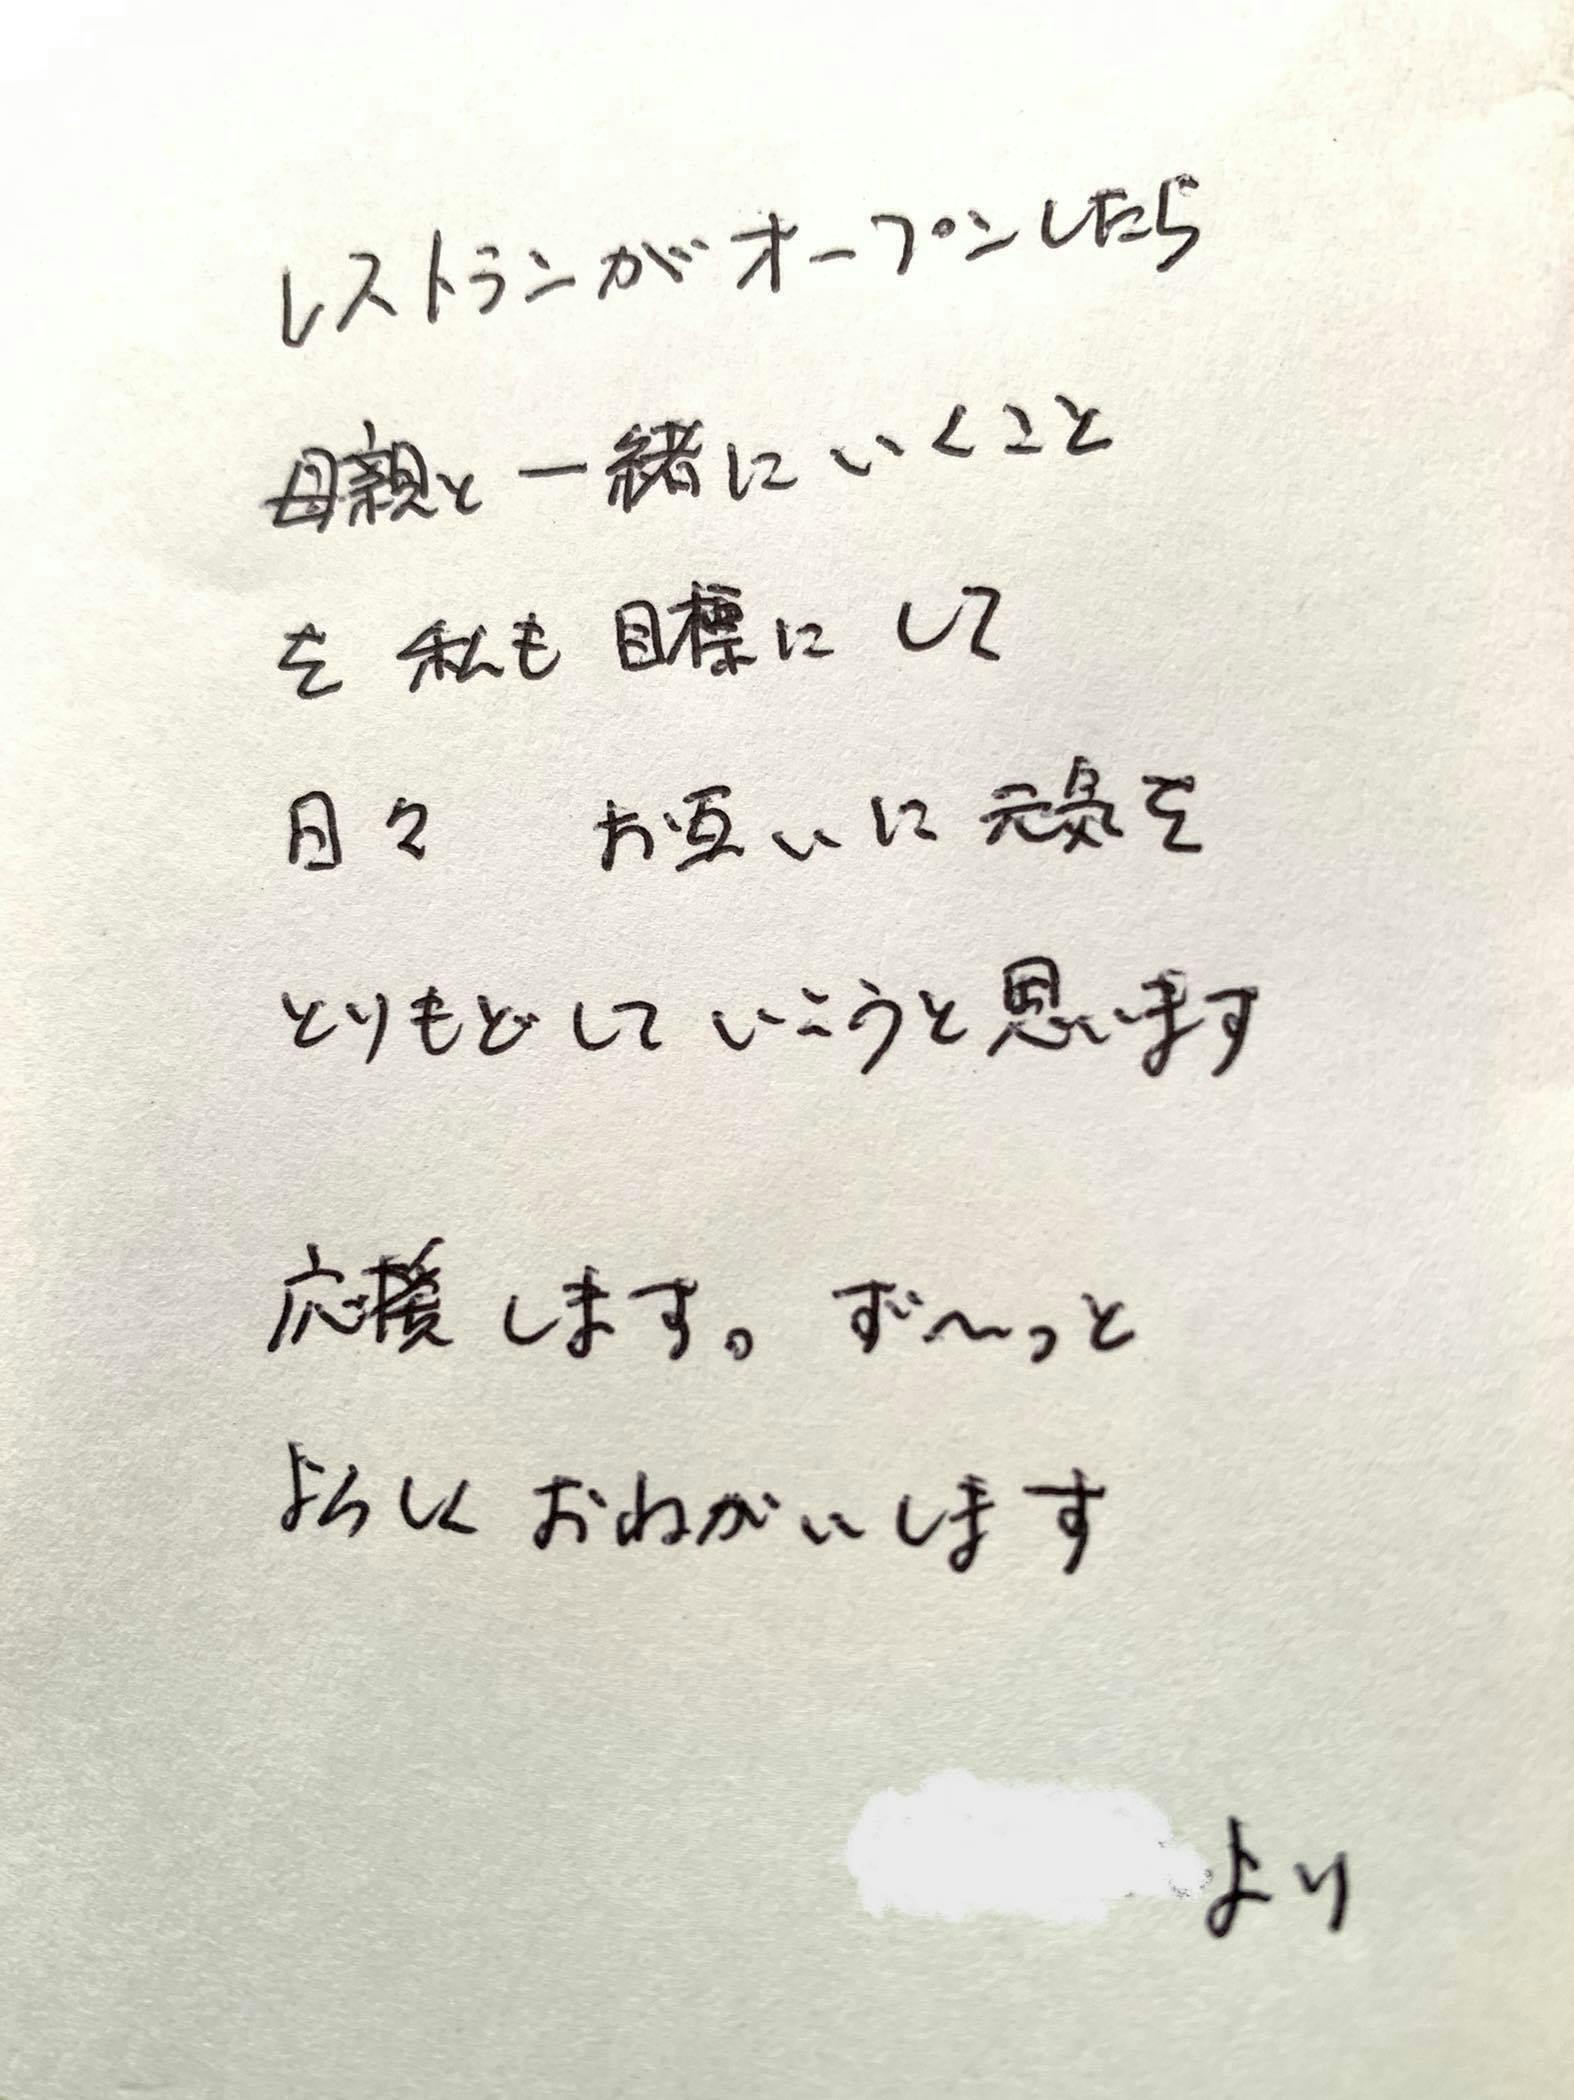 レストランがオープンしたら
母親と一緒にいくこと
を私も目標にして
日々 お互いに元気を
とりもどしていこうと思います
応援します。ず〜っと
よろしくおねがいします
より